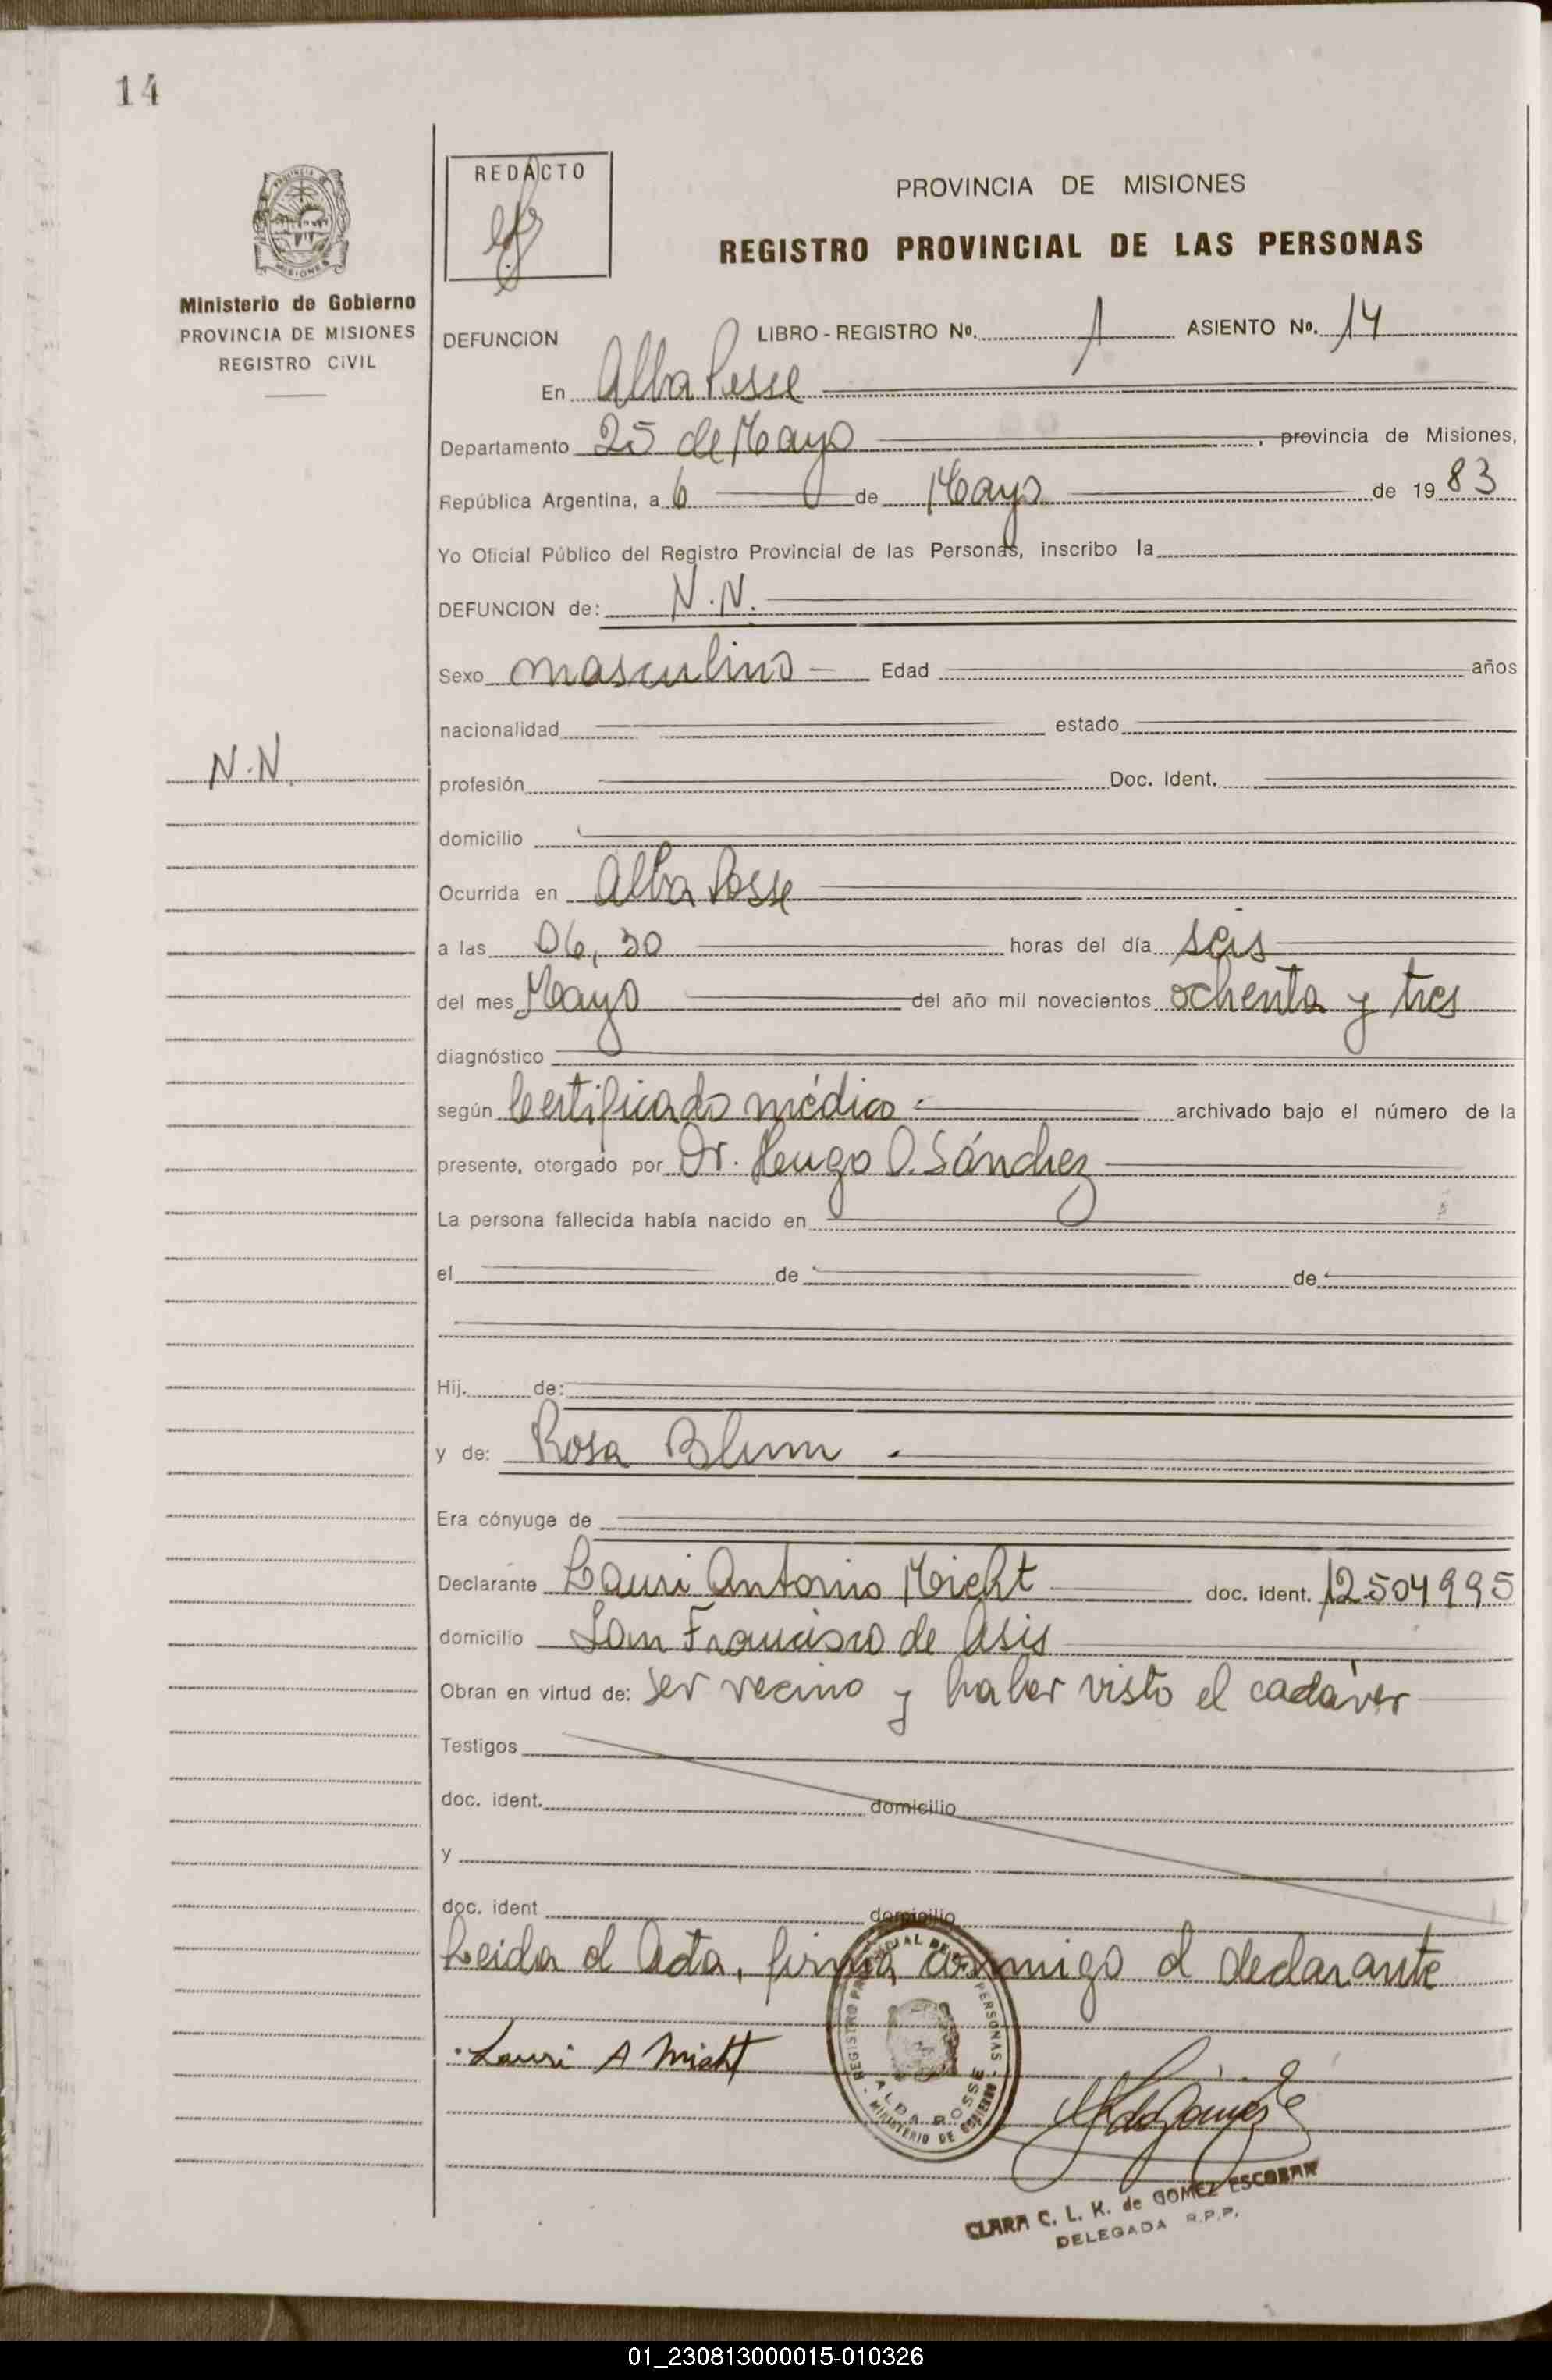 14
REDACTO
PROVINCIA DE MISIONES
REGISTRO PROVINCIAL DE LAS PERSONAS
Ministerio de Gobierno
PROVINCIA DE MISIONES
REGISTRO CIVIL
DEFUNCION LIBRO - REGISTRO Nº. 1 ASIENTO Nº. 14
En Alba Posse
Departamento 25 de Mayo , provincia de Misiones,
República Argentina, a 6 de Mayo de 1983
Yo Oficial Público del Registro Provincial de las Personas, inscribo la
DEFUNCION de: N.N.
Sexo masculino Edad años
nacionalidad estado
N.N.
profesión Doc. Ident.
domicilio
Ocurrida en Alba Posse
a las 06,30 horas del día seis
del mes Mayo del año mil novecientos ochenta y tres
diagnóstico
según Certificado médico archivado bajo el número de la
presente, otorgado por Dr. Hugo O. Sánchez
La persona fallecida había nacido en
el de de
Hij. de:
y de: Rosa Blum
Era cónyuge de
Declarante Lauri Antonio Micht doc. ident. 12504995
domicilio San Francisco de Asis
Obran en virtud de: ser vecino y haber visto el cadáver
Testigos
doc. ident. domicilio
y
doc. ident domicilio
Leida el Acta, firma conmigo el declarante
Lauri A Micht
REGISTRO PROVINCIAL DE LAS PERSONAS
ALBA POSSE
MINISTERIO DE GOBIERNO
CLARA C. L. K. de GOMEZ ESCOBAR
DELEGADA R.P.P.
01_230813000015-010326